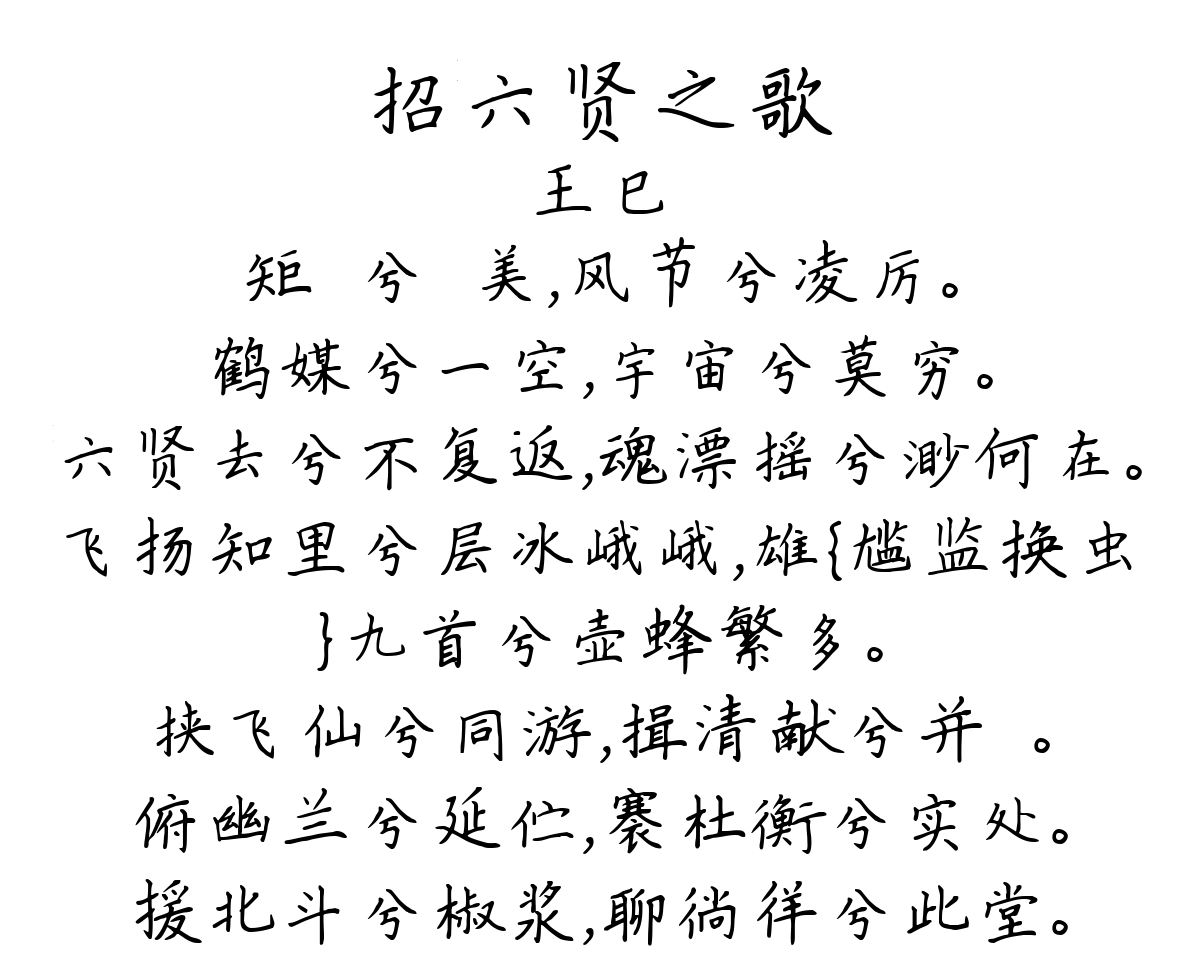 招六贤之歌
王巳
矩 兮 美,风节兮凌厉。
鹤媒兮一空,宇宙兮莫穷。
六贤去兮不复返,魂漂摇兮渺何在。
飞扬知里兮层冰峨峨,雄{尴监换虫
}九首兮壶蜂繁多。
挟飞仙兮同游,揖清献兮并 。
俯幽兰兮延伫,褰杜衡兮实处。
援北斗兮椒浆,聊徜徉兮此堂。